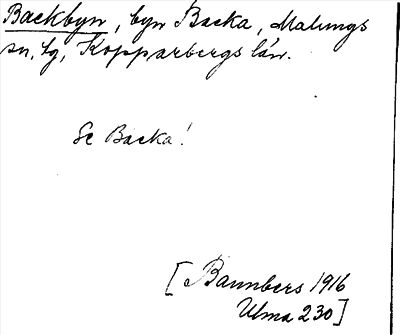 Backbyn, byn Backa, Malungs
sn, tg, Kopparbergs län.
Se Backa!
[Bannbers 1916
Ulma 230]